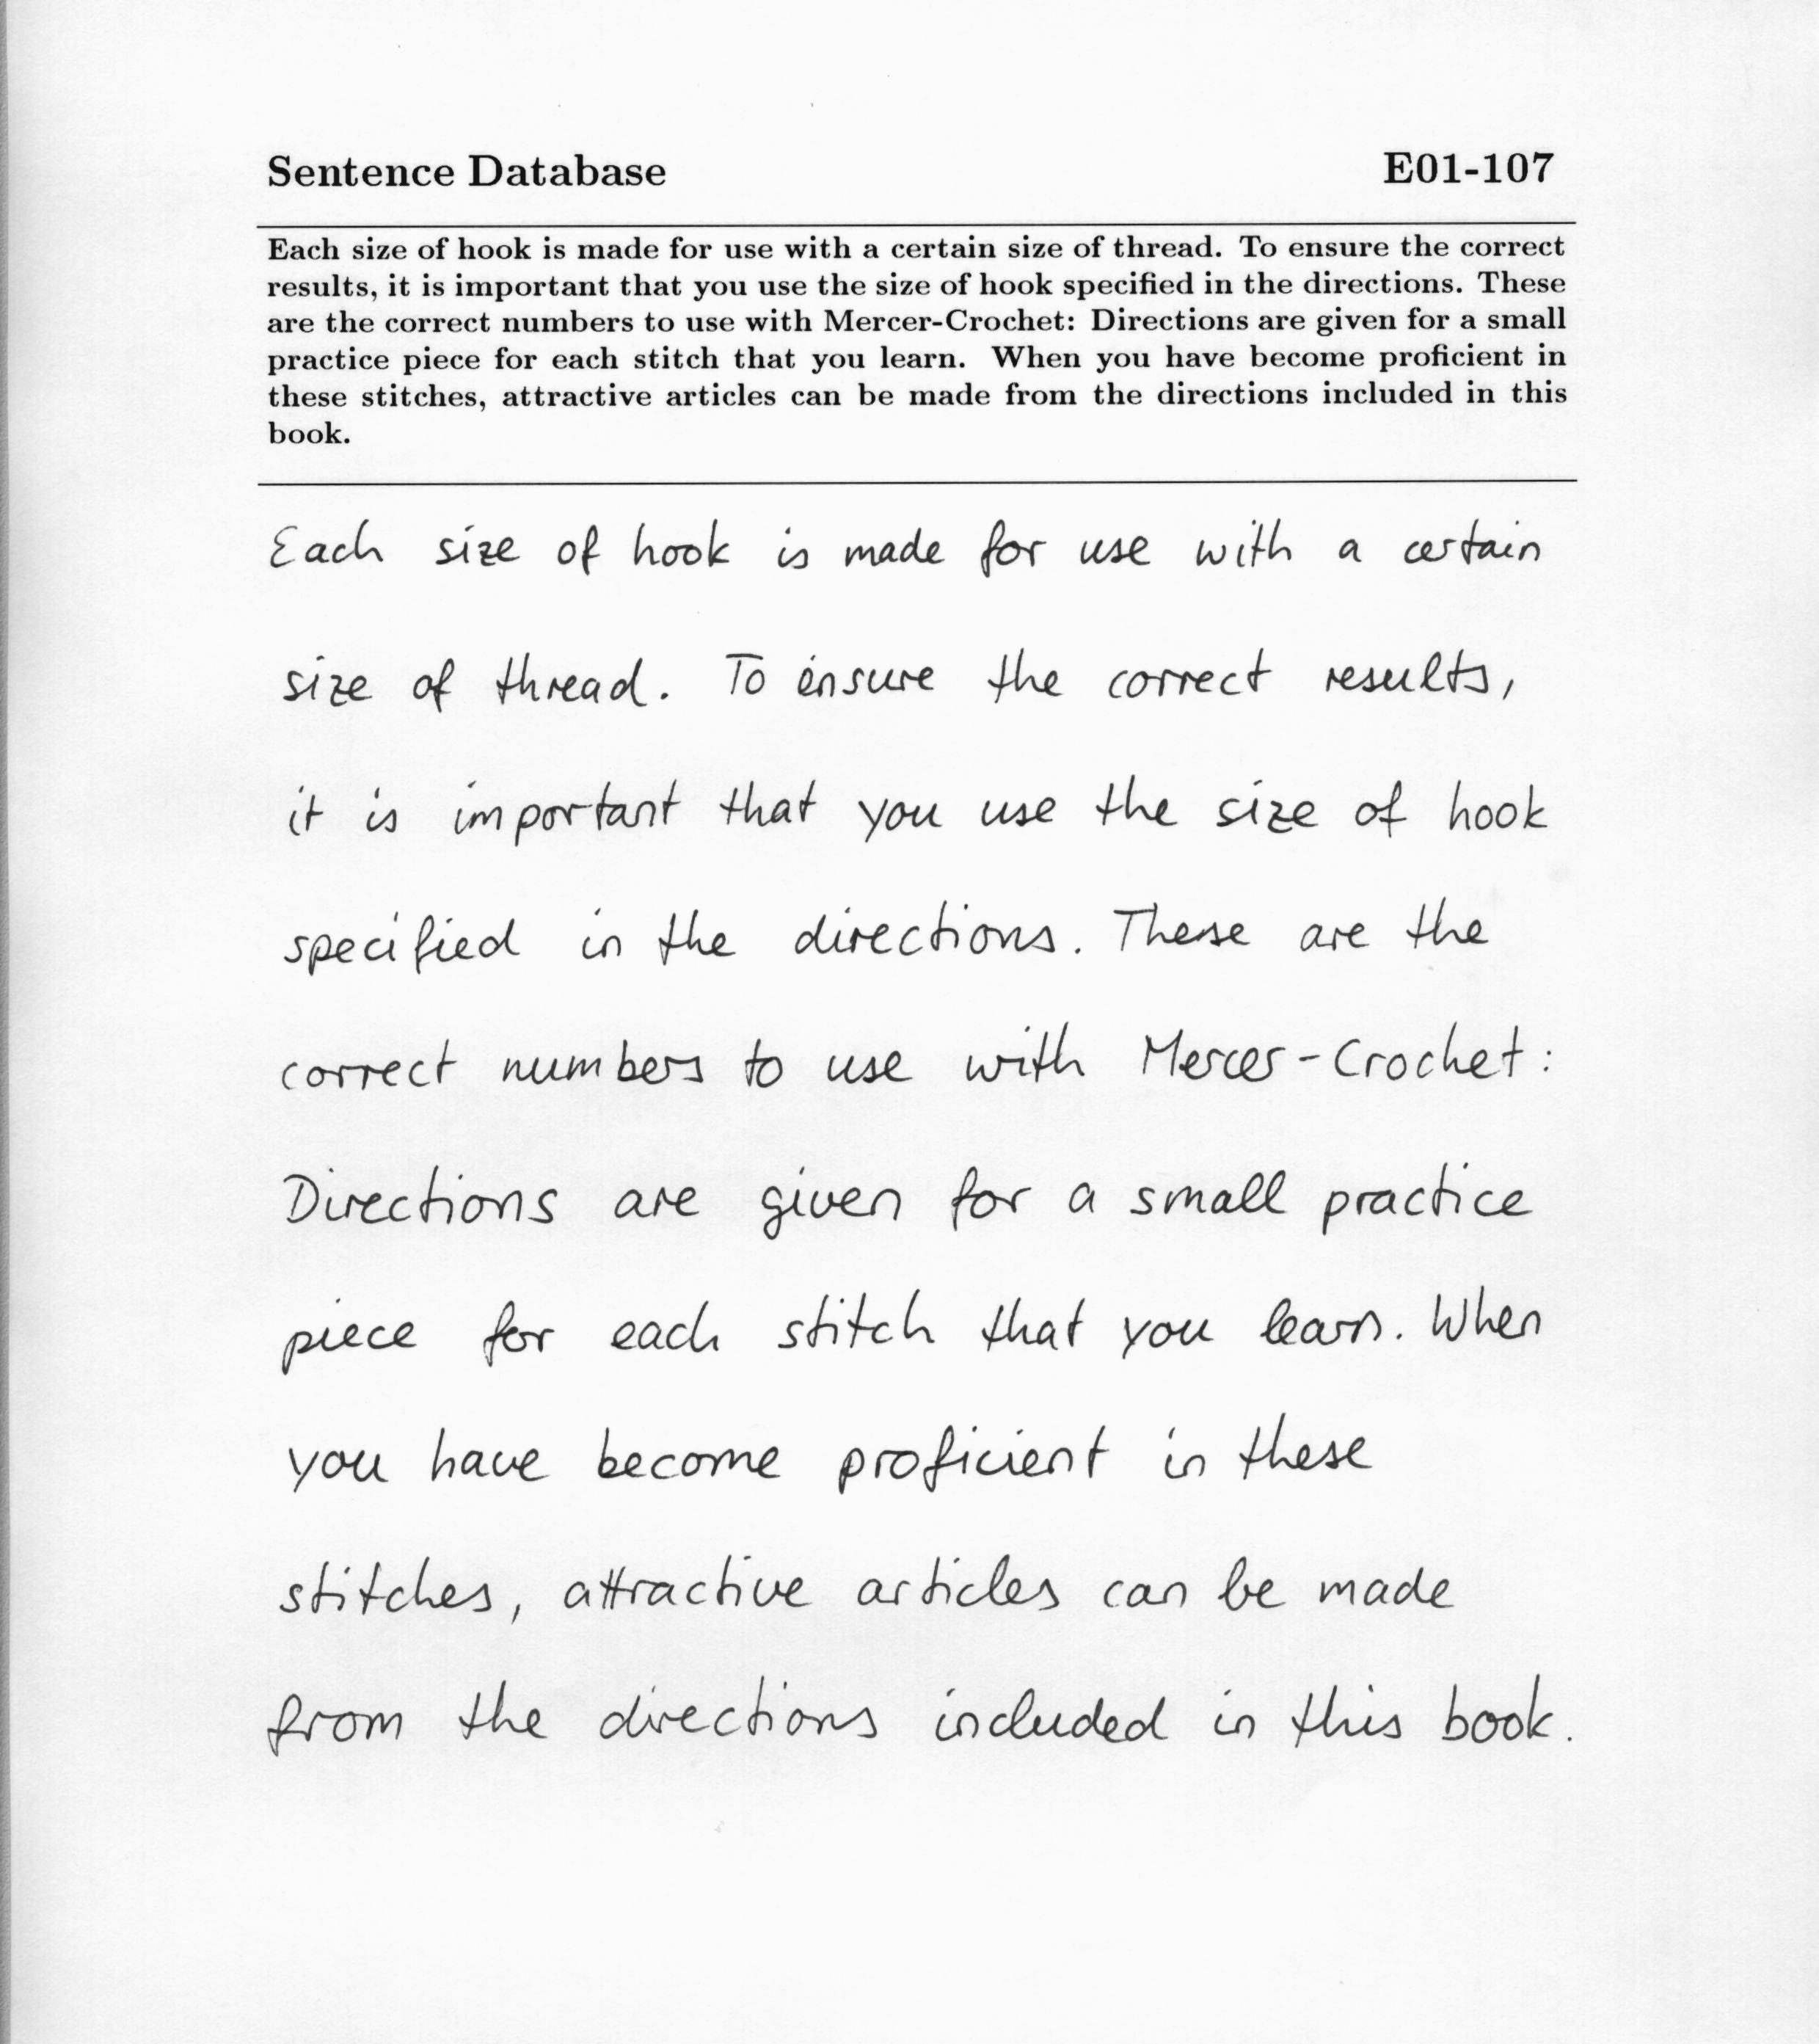 Sentence Database E01-107
Each size of hook is made for use with a certain size of thread. To ensure the correct
results, it is important that you use the size of hook specified in the directions. These
are the correct numbers to use with Mercer-Crochet: Directions are given for a small
practice piece for each stitch that you learn. When you have become proficient in
these stitches, attractive articles can be made from the directions included in this
book.
Each size of hook is made for use with a certain
size of thread. To ensure the correct results,
it is important that you use the size of hook
specified in the directions. These are the
correct numbers to use with Mercer-Crochet:
Directions are given for a small practice
piece for each stitch that you learn. When
you have become proficient in these
stitches, attractive articles can be made
from the directions included in this book.